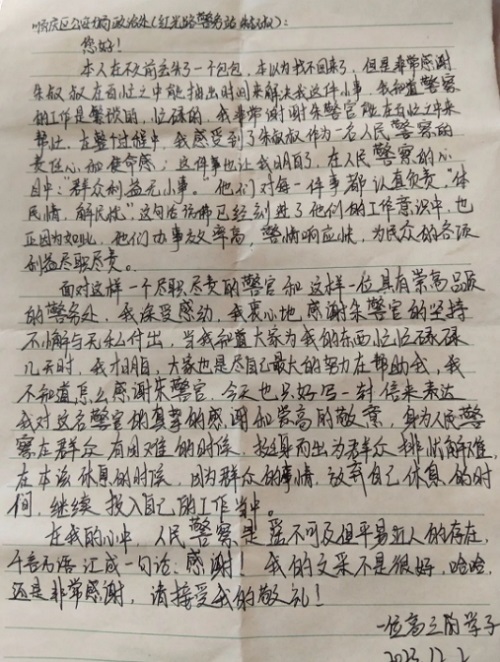 顺庆区公安分局政治处(红光路警务站 转收):
您好!
本人在不久前丢失了一个包包,本以为找不回来了,但是非常感谢
朱叔叔在百忙之中能抽出时间来解决我这件小事,我知道警察
的工作是繁琐的,忙碌的,我非常谢谢朱警官能在百忙之中来
帮忙,在整个过程中,我感受到了朱叔叔作为一名人民警察的
责任心和使命感;这件事也让我明白了,在人民警察的心
目中:"群众利益无小事。他们对每一件事都认真负责,"体
民情,解民忧"。这句话仿佛已经刻进了他们的工作意识中,也
正因为如此,他们办事效率高,警情响应快,为民众的各项
利益尽职尽责。
面对这样一个尽职尽责的警官和这样一位具有崇高品质
的警务处,我深受感动,我衷心地感谢朱警官的坚持
不懈与无私付出,当我知道大家为我的东西忙忙碌碌
几天时,我相信,大家也是尽自己最大的努力在帮助我,我
不知道怎么感谢朱警官,今天也只好写一封信来表达
我对这名警官的真挚的感谢和崇高的敬意,身为人民警
察在群众有困难的时候,挺身而出为群众排忧解难,
在本该休息的时候,因为群众的事情,放弃自己休息的时
间,继续投入自己的工作当中。
在我的心中,人民警察是遥不可及但平易近人的存在,
千言万语汇成一句话:感谢!我的文采不是很好,哈哈,
还是非常感谢,请接受我的敬礼!
一位高三的学子
2023.12.2